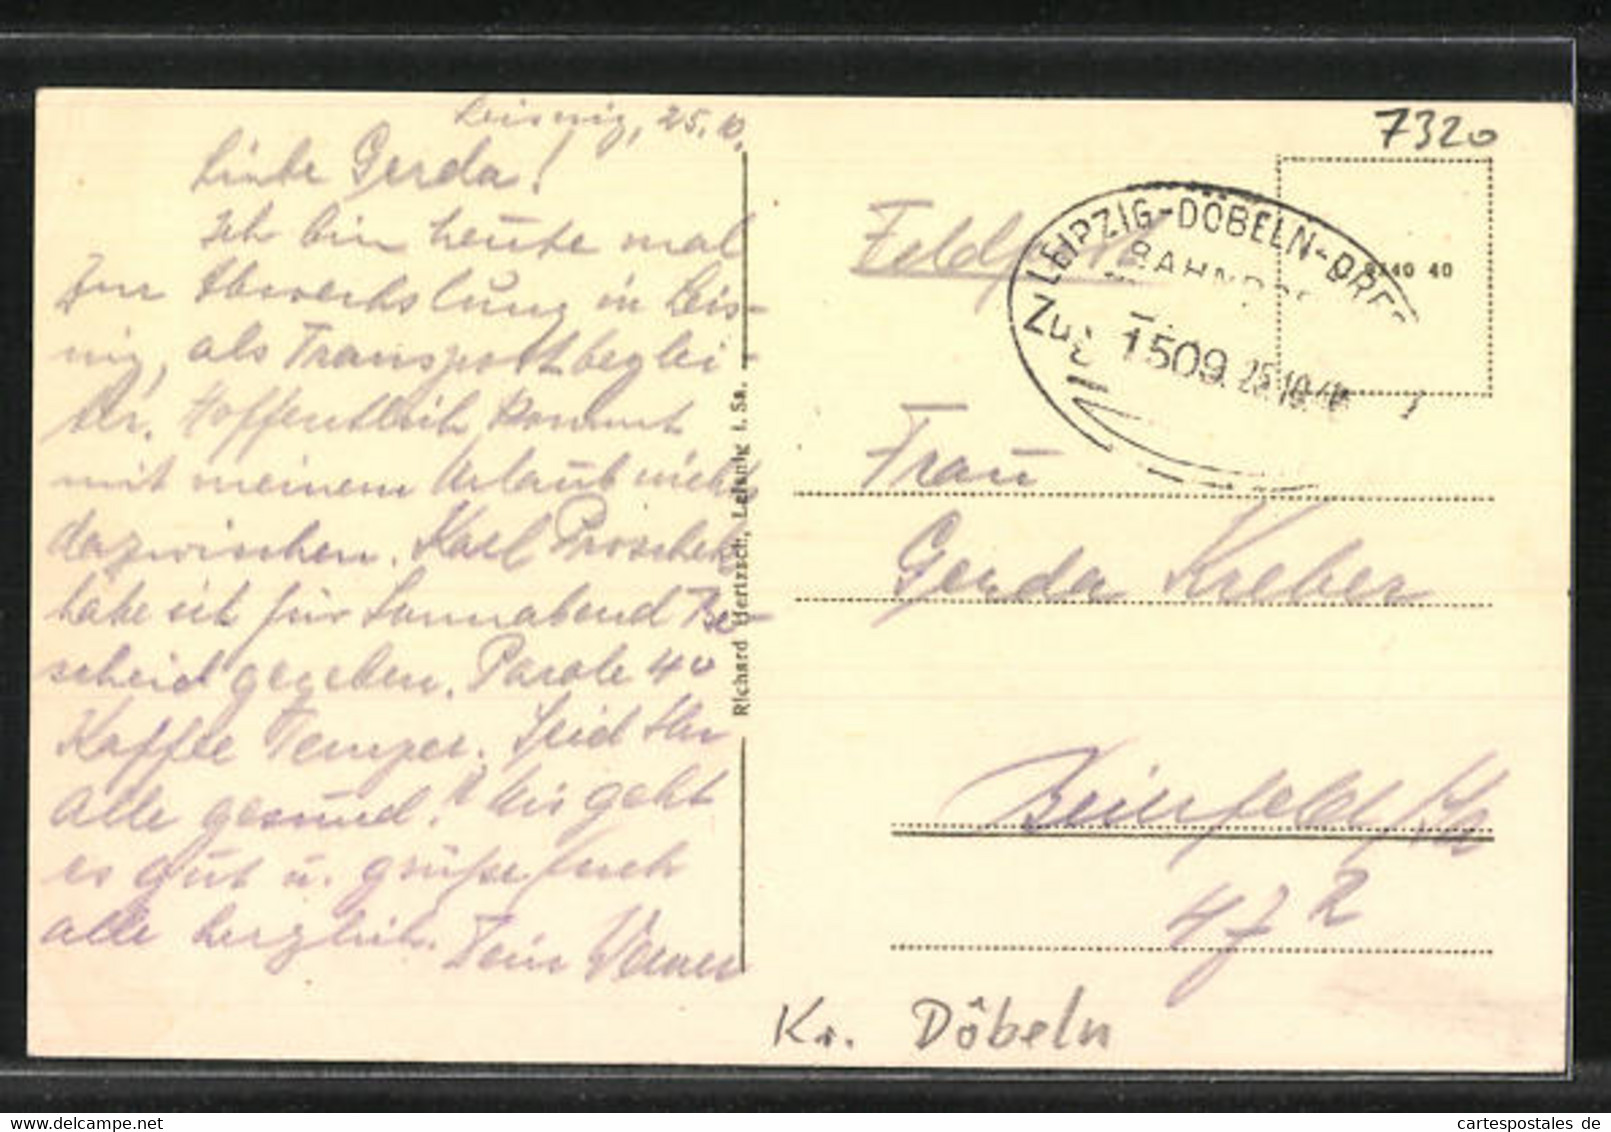 Leisnig, 25.10.
Liebe Gerda!
Ich bin heute mal
zur Abwechslung in Leis-
nig, als Transportbeglei-
ter. Hoffentlich kommt
mit meinem Urlaub nichts
dazwischen. Karl
habe ich für Sonnabend Be-
scheid gegeben. Parole 40
Kaffee Temper. Seid Ihr
alle gesund? Mir geht
es gut u. grüße Euch
alle herzlich. Dein Werner
Richard Hertzsch, Leisnig i. Sa.
7320
Feldpost
LEIPZIG-DÖBELN-DRES
BAHNPOST
Zug 1509 25.10.
40 40
Frau
Gerda Kreber
47
Kr. Döbeln
cartespostales de